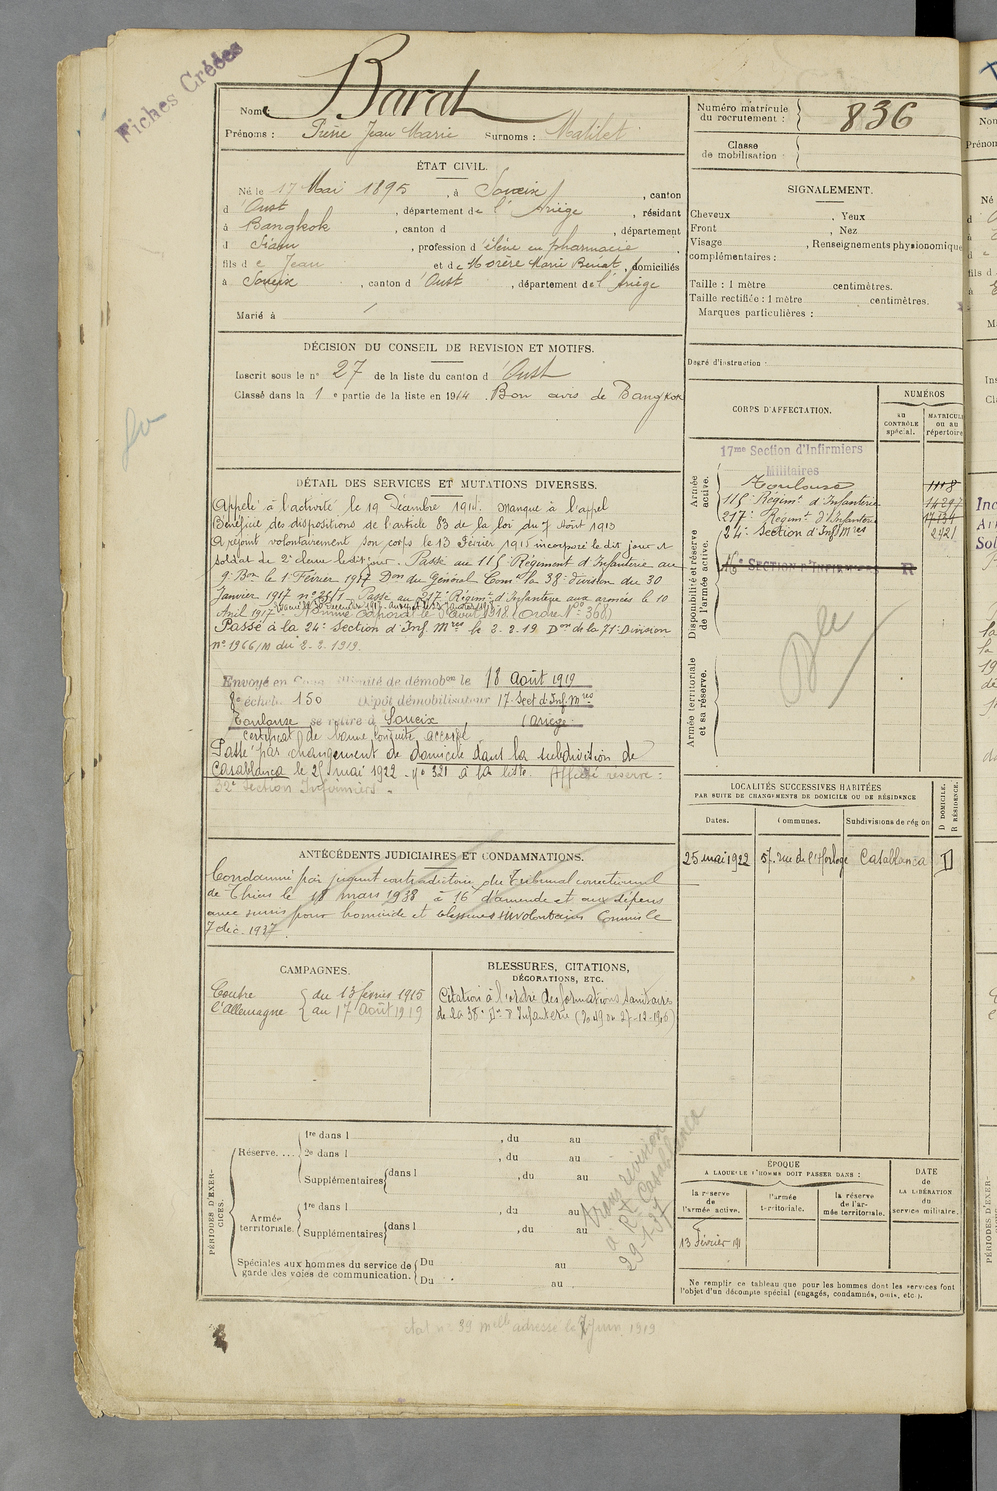 Fiches Créées
Nom Barat
Prénoms : Pierre Jean Marie Surnoms : Matilet
Numéro matricule du recrutement : 836
Classe de mobilisation :
ÉTAT CIVIL.
Né le 17 Mai 1895, à Soueix, canton
d'Oust, département de l'Ariège, résidant
à Bangkok, canton d , département
d Siam, profession d'élève en pharmacie
fils de Jean et de Morère Marie Benat, domiciliés
à Soueix, canton d'Oust, département de l'Ariège
Marié à
SIGNALEMENT.
Cheveux , Yeux
Front , Nez
Visage , Renseignements physionomiques
complémentaires :
Taille : 1 mètre centimètres.
Taille rectifiée : 1 mètre centimètres.
Marques particulières :
Degré d'instruction :
DÉCISION DU CONSEIL DE REVISION ET MOTIFS.
Inscrit sous le n° 27 de la liste du canton d'Oust
Classé dans la 1e partie de la liste en 1914. Bon avis de Bangkok
DÉTAIL DES SERVICES ET MUTATIONS DIVERSES.
Appelé à l'activité le 19 Décembre 1914. Manque à l'appel
Bénéficie de dispositions de l'article 83 de la loi du 7 Août 1913
A rejoint volontairement son corps le 13 Février 1915 incorporé le dit jour et
soldat de 2e classe ledit jour. Passé au 115e Régiment d'Infanterie au
9e Bon le 1er Février 1917 Don du Général Comt la 38e division du 30
Janvier 1917 n° Passé au 217e Régimt d'Infanterie aux armées le 10
Avril 1917
Nommé Caporal le Août 1918 (Ordre N° 368)
Passé à la 24e Section d'Inf. Mres le 3.2.19 Don de la 71e Division
n° 1966/M du 2.2.1919.
Envoyé en Congé illimité de démobon le 18 Août 1919
8e échelon 150 Dépôt démobilisateur 17e Sect d'Inf. Mres
Toulouse se retire à Soueix, (Ariège
certificat de bonne conduite accordé
Passé par changement de domicile dans la subdivision de
Casablanca le 25 mai 1922 - n° 321 à la liste. Affecté réserve :
32e Section Infirmiers.
CORPS D'AFFECTATION.
NUMÉROS
AU CONTRÔLE spécial.
MATRICULE ou au répertoire
Armée active.
17me Section d'Infirmiers
Militaires
Toulouse 1118
115e Régimt d'Infanterie 14297
217e Régimt d'Infanterie 17134
24e Section d'Inf Mres 2921
Disponibilité et réserve de l'armée active.
SECTION D'INFIRMIERS R
Armée territoriale et sa réserve.
LOCALITÉS SUCCESSIVES HABITÉES
PAR SUITE DE CHANGEMENTS DE DOMICILE OU DE RÉSIDENCE
Dates. Communes. Subdivisions de région D DOMICILE. R RÉSIDENCE.
25 mai 1922 57, rue de l'Horloge Casablanca D
ANTÉCÉDENTS JUDICIAIRES ET CONDAMNATIONS.
Condamné par jugement contradictoire du Tribunal correctionnel
de Thiers le 18 mars 1938 à 16f d'amende et aux dépens
avec sursis pour homicide et blessures involontaires Commis le
7 déc. 1937.
CAMPAGNES.
Contre l'Allemagne { du 13 février 1915
au 17 Août 1919
BLESSURES, CITATIONS,
DÉCORATIONS, ETC.
Citation à l'ordre des formations sanitaires
de la 38e Don d'Infanterie
PÉRIODES D'EXERCICES.
Réserve. ....
1re dans l , du au
2e dans l , du au
Supplémentaires dans l , du au
Armée territoriale.
1re dans l , du au
Supplémentaires dans l , du au
Spéciales aux hommes du service de garde des voies de communication.
Du au
Du au
révision
à Rt Casablanca
29.1.37
ÉPOQUE
A LAQUELLE L'HOMME DOIT PASSER DANS :
la réserve de l'armée active. l'armée territoriale. la réserve de l'armée territoriale.
DATE de LA LIBÉRATION du service militaire.
13 Février
Ne remplir ce tableau que pour les hommes dont les services font
l'objet d'un décompte spécial (engagés, condamnés, omis, etc.).
état n° 39 adressé le 7 Juin 1919